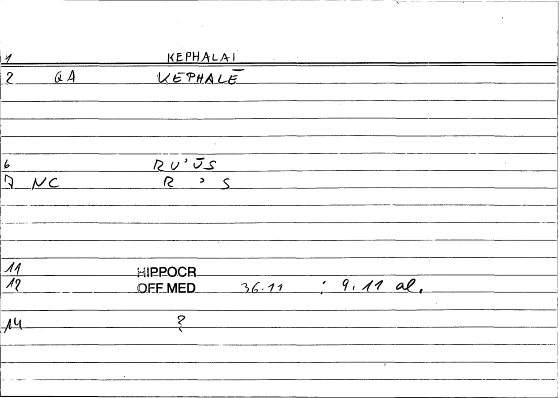 1 KEPHALAI
2 QA KEPHALĒ
6 RU'ŪS
7 NC R ' S
11 HIPPOCR
12 OFF.MED 36.11 : 9.11 al.
14 ?